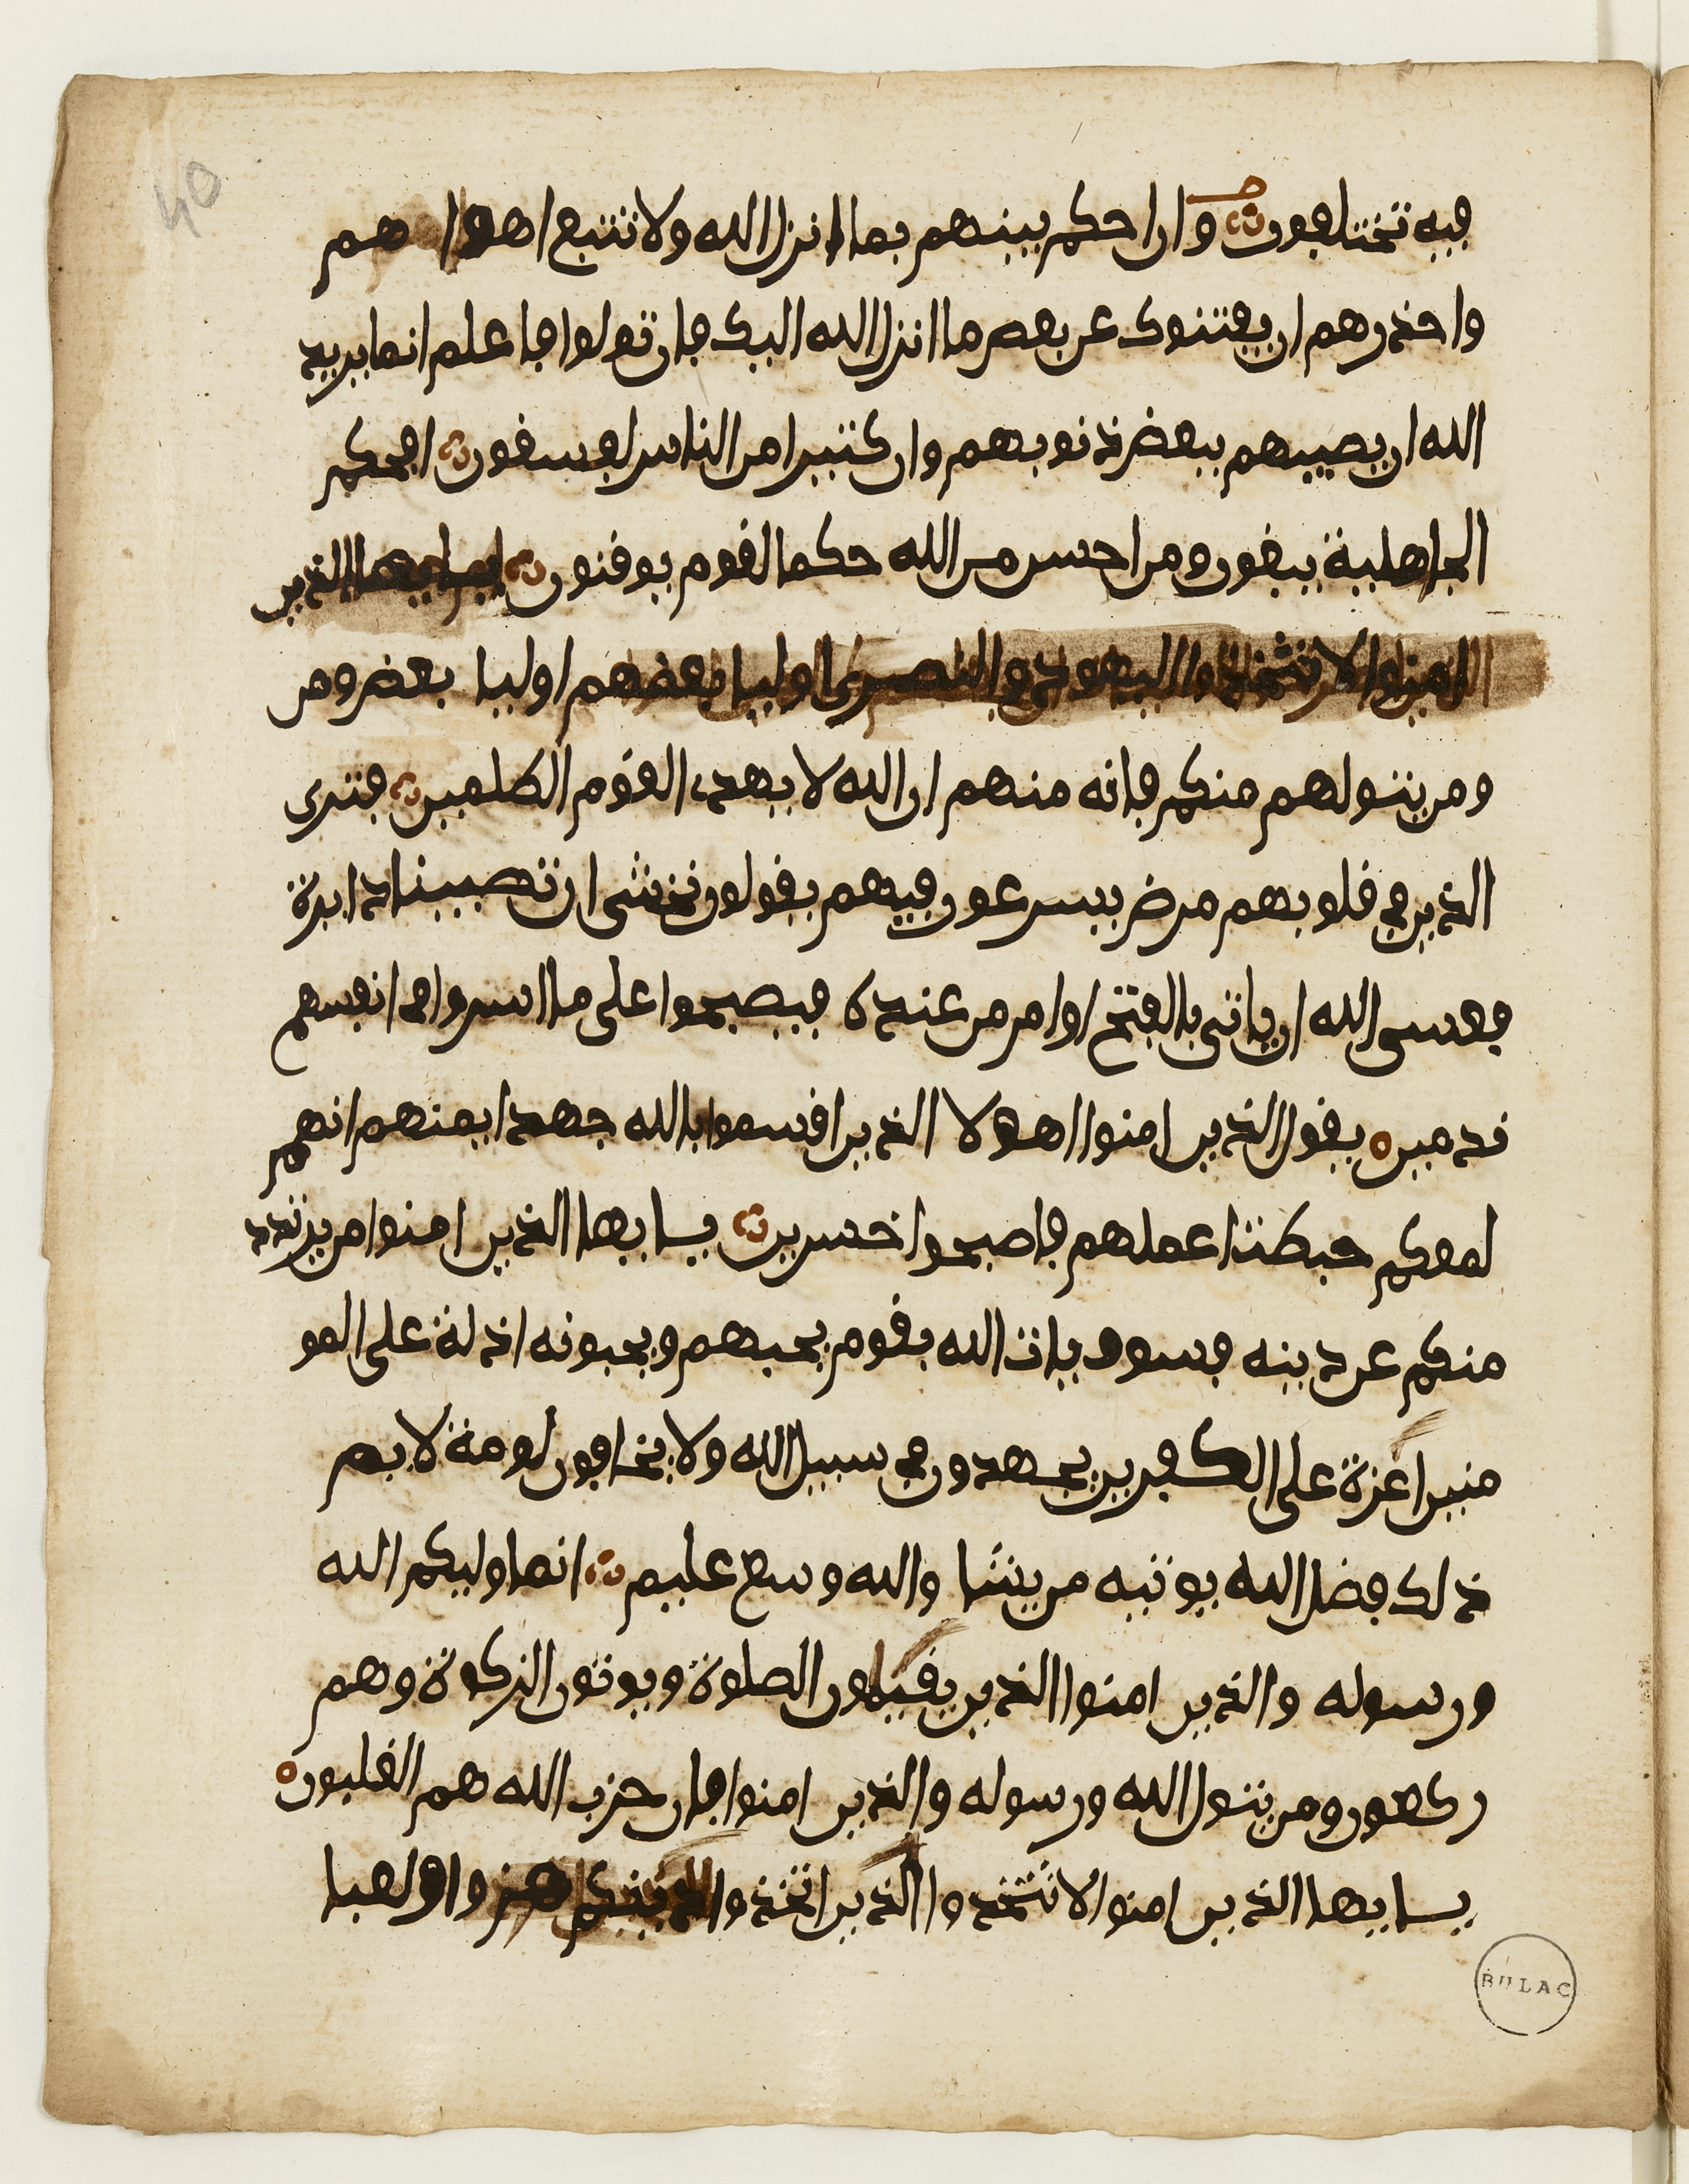 40
فيه تختلفون وان احكم بينهم بما انزل الله ولا تتبع اهوا هم
واحذرهم ان يفتنوك عن بعض ما انزل الله اليك فان تولوا فاعلم انما يريد
الله ان يصيبهم ببعض ذنوبهم وان كثيرا من الناس لفسقون افحكم
الجاهلية يبغون ومن احسن من الله حكما لقوم يوقنون يايها الذين
امنوا لا تتخذوا اليهود والنصرى اوليا بعضهم اوليا بعض ومن
ومن يتولهم منكم فانه منهم ان الله لا يهدى القوم الظلمين فترى
الذين في قلوبهم مرض يسرعون فيهم يقولون نخشى ان تصيبنا دايرة
فعسى الله ان ياتي بالفتح او امر من عنده فيصبحوا على ما اسروا في انفسهم
ندمين يقول الذين امنوا اهولا الذين اقسموا بالله جهد ايمنهم انهم
لمعكم حبطت اعملهم فاصبحوا خسرين يايها الذين امنوا من يرتدد
منكم عن دينه فسوف ياتى الله بقوم يحبهم ويحبونه اذلة على المو
منين اعزة على الكفرين يجهدون في سبيل الله ولا يخافون لومة لايم
ذلك فضل الله يوتيه من يشا والله وسع عليم انما وليكم الله
ورسوله والذين امنوا الذين يقيمون الصلوة ويوتون الزكوة وهم
ركعون ومن يتول الله ورسوله والذين امنوا فان حزب الله هم الغلبون
يايها الذين امنوا لا تتخذوا الذين اتخذوا دينكم هزوا ولعبا
BULAC